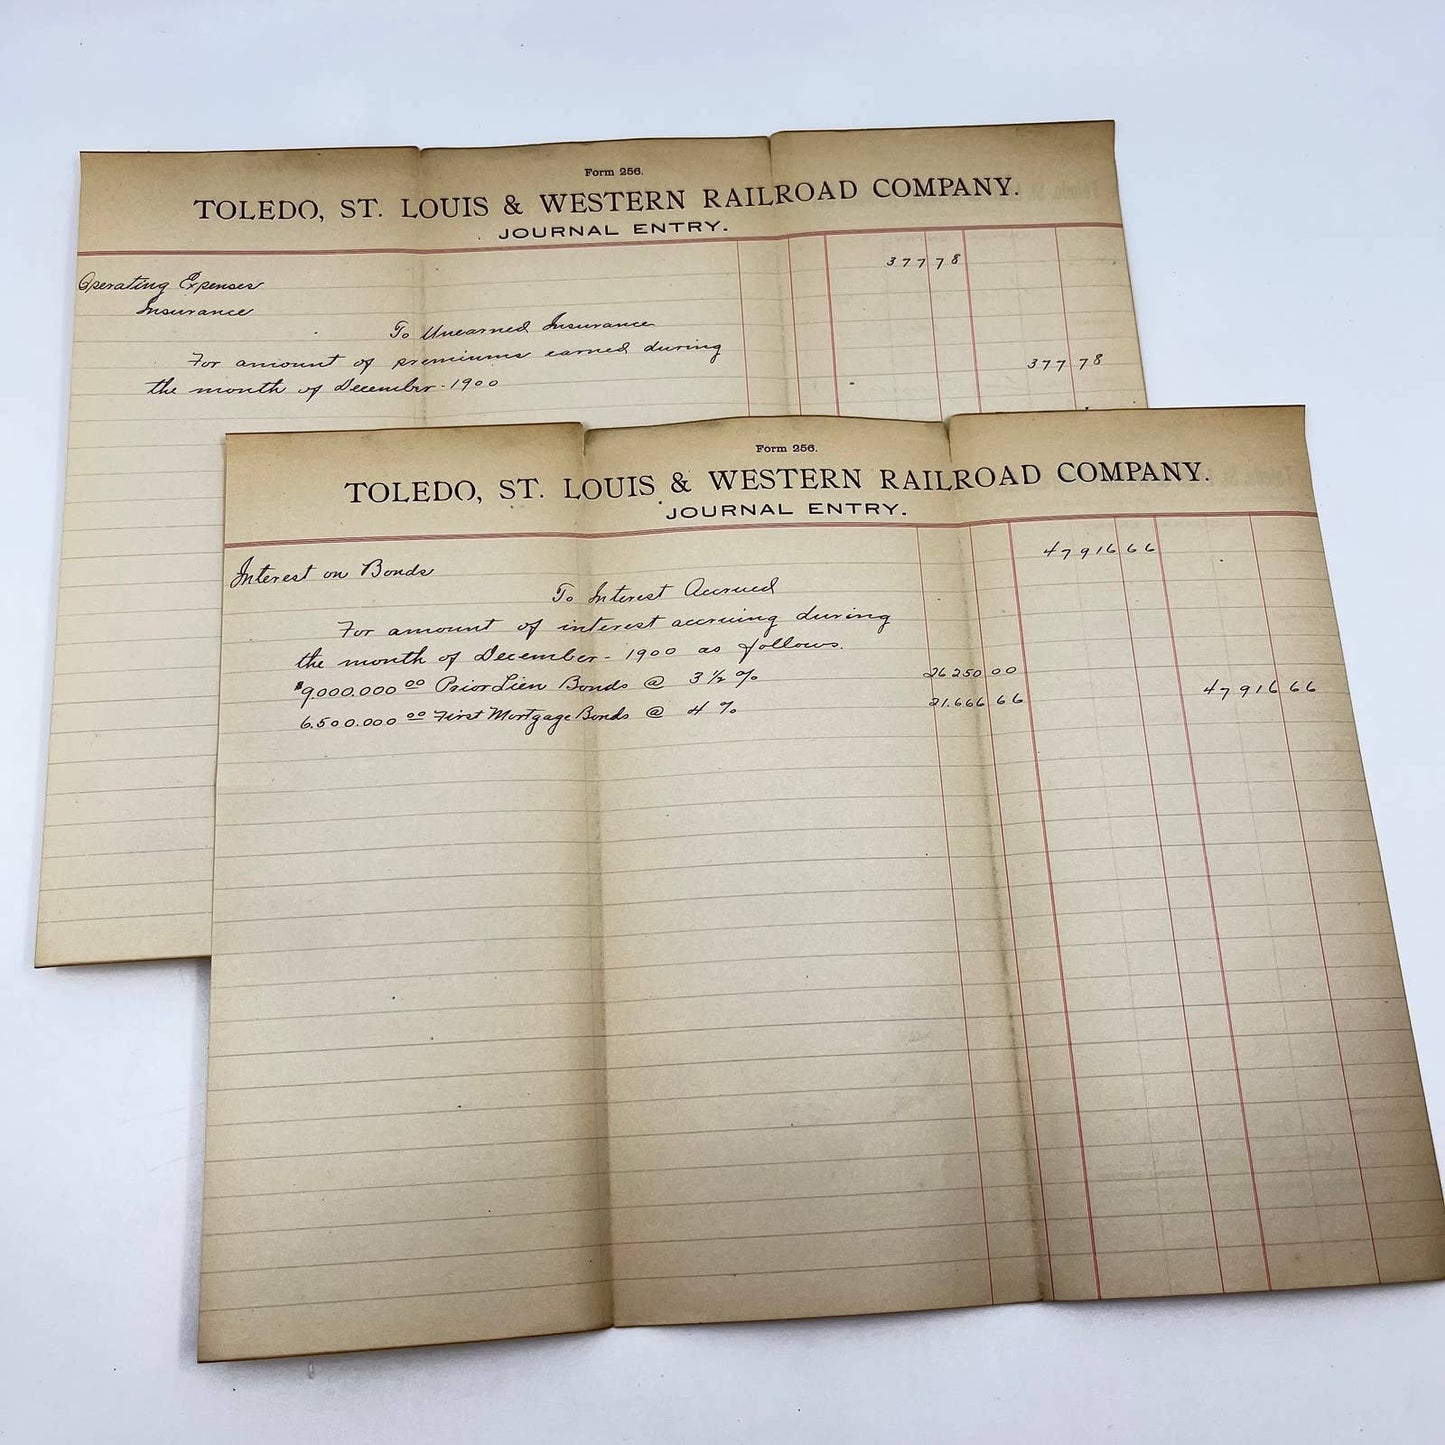 Form 256.
TOLEDO, ST. LOUIS & WESTERN RAILROAD COMPANY.
JOURNAL ENTRY.
377 78
Operating Expenses
Insurance
To Unearned Insurance
For amount of premiums earned during
the month of December - 1900
377 78
Form 256.
TOLEDO, ST. LOUIS & WESTERN RAILROAD COMPANY.
JOURNAL ENTRY.
47916 66
Interest on Bonds
To Interest Accrued
For amount of interest accruing during
the month of December - 1900 as follows.
$9.000.000 00 Prior Lien Bonds @ 3 1/2 % 26 250 00
6.500.000 00 First Mortgage Bonds @ 4 % 21.666 66 47916 66